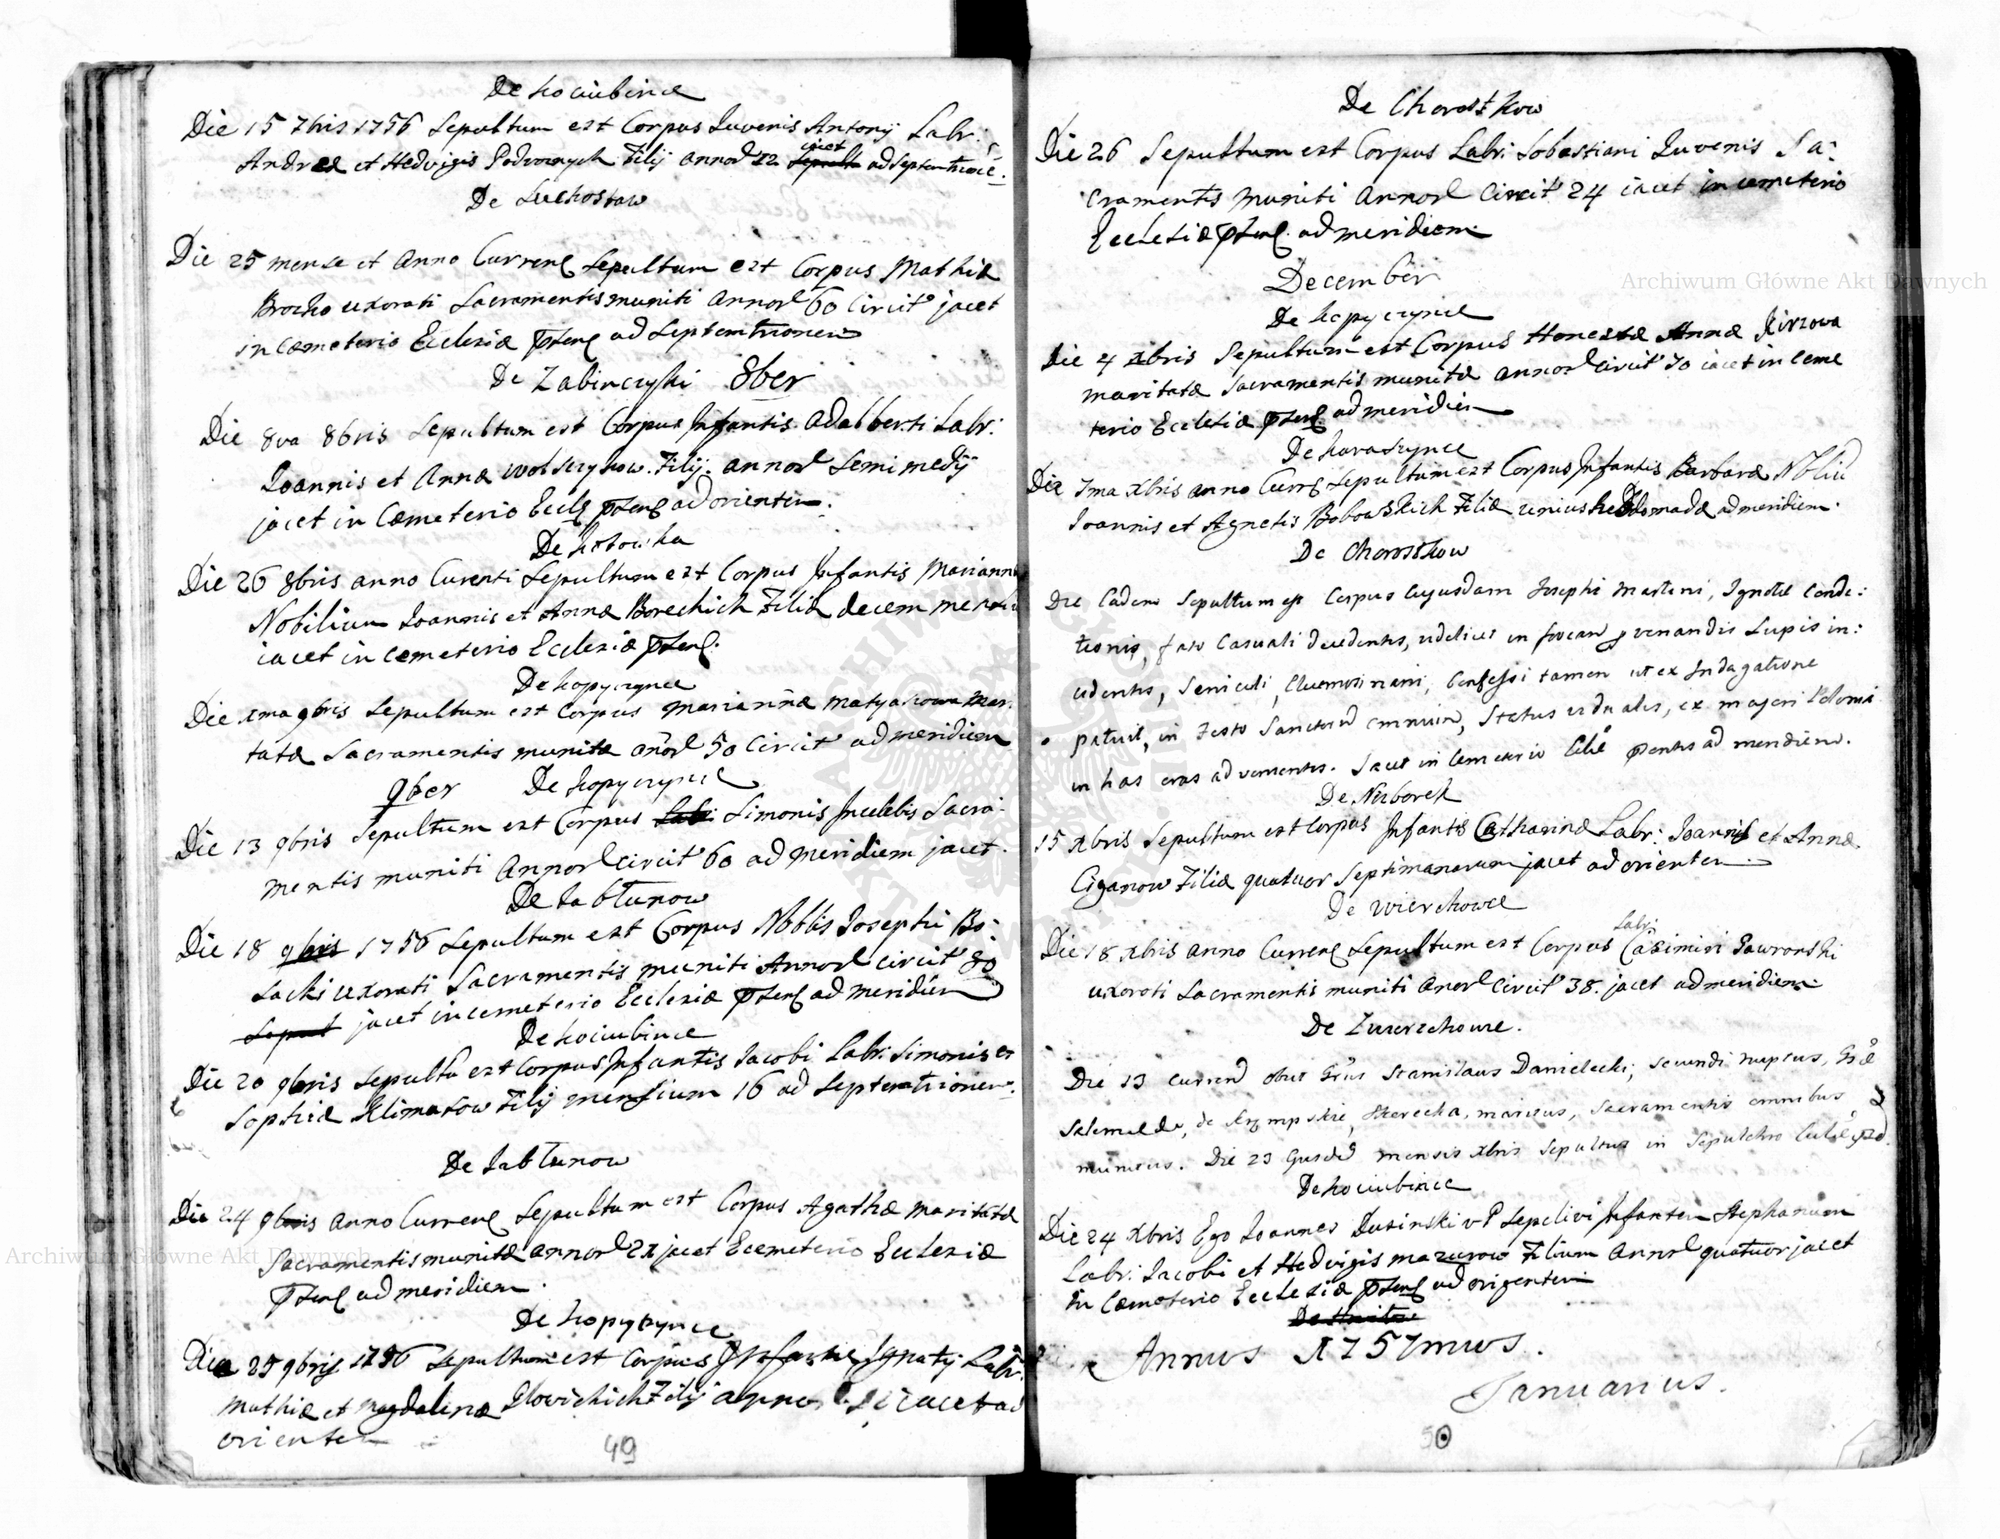 De Kociubince
Die 15 7bris 1756 Sepultum est Corpus Iuvenis Antonij Labr:
Andreæ et Hedvigis Filij annor 22 jacet ad Septentrione.
De Suchostaw
Die 25 mense et Anno Curren Sepultum est Corpus Mathiæ
Brocko uxorati Sacramentis muniti Annor 60 Circit jacet
in Cœmeterio Ecclesiæ ad Septemtrionem
De Zabinczyki 8ber
Die 8va 8bris Sepultum est Corpus Infantis Adalberti Labr:
Ioannis et Annæ Filij. annor Semi medij
jacet in Cœmeterio Eccls ad orientem.
De Kotowka
Die 26 8bris anno Curenti Sepultum est Corpus Infantis Mariann
Nobilium Ioannis et Annæ Boreckich Filiæ decem
iacet in cemeterio Ecclesiæ
De Kopyczynce
Die xma 9bris Sepultum est Corpus Mariannæ Matyasowa Mari
tatæ Sacramentis munitæ annor 50 Circit ad meridiem
9ber De Kopyczynce
Die 13 9bris Sepultum est Corpus Simonis Incelebis Sacra:
mentis muniti Annor Circit 60 ad meridiem jacet.
De Jabłunow
Die 18 9bris 1756 Sepultum est Corpus Nobbis Iosephi Bo:
sacki uxorati Sacramentis muniti Annor circit 80
jacet in cemeterio Ecclesiæ ad Meridiem
De Kociubince
Die 20 9bris Sepultu est Corpus Infantis Iacobi Labr: Simonis et
Sophiæ Klimasow Filij mensium 16 ad Septemtrionem.
De Jabłunow
Die 24 9bris anno Curren Sepultum est Corpus Agathæ Maritatæ
Sacramentis munitæ annor 21 jacet Ecemeterio Ecclesiæ
ad meridiem.
De Kopyczynce
Die 25 9bris 1756 Sepultum est Corpus Infantis Ignatij Labr.
Mathiæ et Magdalenæ Filij jacet ad
orientem
49
De Chorostkow
Die 26 Sepultum est Corpus Labr: Sobastiani Iuvenis Sa:
cramentis Muniti Annor Circit 24 iacet in cemeterio
Ecclesiæ ad meridiem
December
De Kopyczynce
Die 4 xbris Sepultum est Corpus Honestæ Annæ Kirzowa
maritatæ Sacramentis munitæ annor circit 70 iacet in Ceme
terio Ecclesiæ ad meridiem
De Karaszynce
Die 7ma Xbris anno Curr Sepultum est Corpus Infantis Barbaræ Nobliu
Ioannis et Agnetis Bobowskich Filiæ unius hebdomadæ ad meridiem.
De Chorostkow
Die Eadem Sepultum est Corpus Cujusdam Josephi Marteni, Ignotæ Condi:
tionis, fato Casuali decedentis, videlicet in foveam venandis Lupis in:
cidentis, Seniculi, Eleemosinarii, Confessi tamen ut ex Indagatione
patuit, in Festo Sanctorum omnium, Status vidualis, ex majori Polonia
in has oras advenientis. Jacet in Cemeterio ad meridiem.
De Niżborek
15 Xbris Sepultum est Corpus Infantis Catharinæ Labr: Ioannis et Annæ
Ciganow Filiæ quatuor Septimanarum jacet ad orientem.
De Wierzchowce
Labr:
Die 18 Xbris anno Curren Sepultum est Corpus Casimiri Gawronski
uxorati Sacramentis muniti Anor Circit 38. jacet ad meridiem
De Zwierzchowce.
Die 13 current obiit Stanislaus Danielecki, secundi nuptus,
Salomeæ de maritus, Sacramentis omnibus
munitus. Die 23 mensis Xbris Sepultus in Sepulchro
De Kociubince
Die 24 Xbris Ego Ioannes Dusinski Sepelivi Infantem Stephanum
Labr: Iacobi et Hedvigis Mazurow Filium Annor quatuor jacet
in Cœmeterio Ecclesiæ ad orientem
Annus 1757mus.
Januarius.
50
Archiwum Główne Akt Dawnych
Archiwum Główne Akt Dawnych